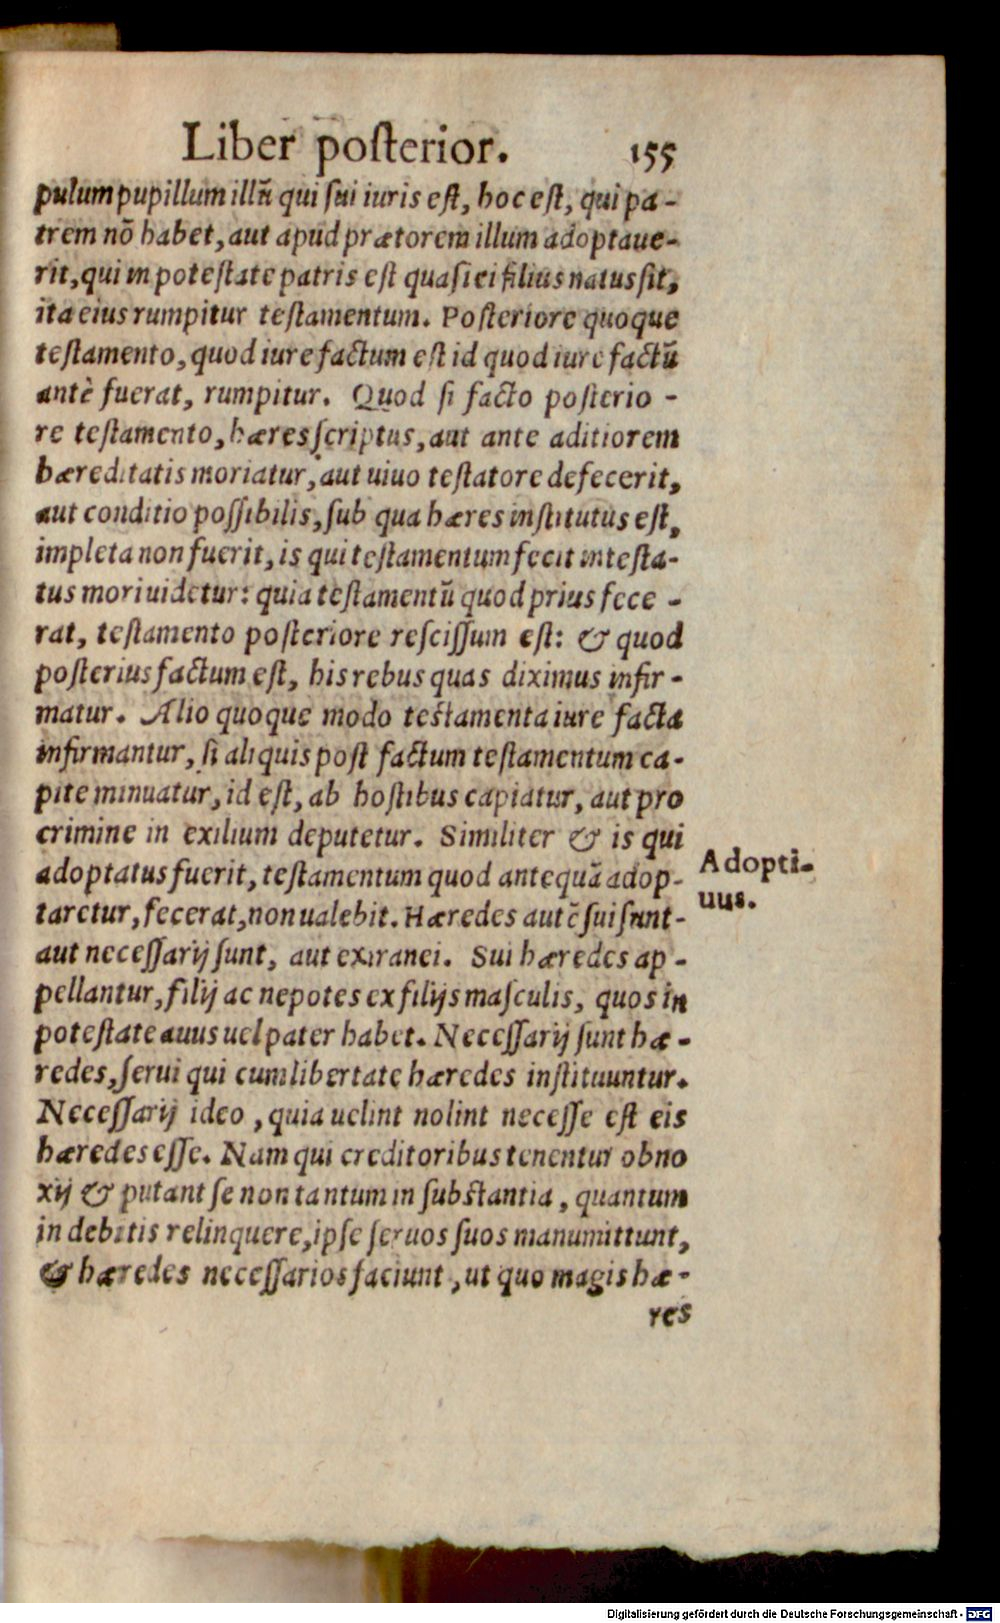 Liber posterior. 155
pulum pupillum illũ qui sui iuris est, hoc est, qui pa-
trem nõ habet, aut apud prætorem illum adoptaue-
rit, qui in potestate patris est quasi ei filius natus sit,
ita eius rumpitur testamentum. Posteriore quoque
testamento, quod iure factum est id quod iure factũ
antè fuerat, rumpitur. Quod si facto posterio -
re testamento, hæres scriptus, aut ante aditiorem
hæreditatis moriatur, aut uiuo testatore defecerit,
aut conditio possibilis, sub qua hæres institutus est,
impleta non fuerit, is qui testamentum fecit intesta-
tus mori uidetur: quia testamentũ quod prius fece -
rat, testamento posteriore rescissum est: & quod
posterius factum est, his rebus quas diximus infir-
matur. Alio quoque modo testamenta iure facta
infirmantur, si aliquis post factum testamentum ca-
pite minuatur, id est, ab hostibus capiatur, aut pro
crimine in exilium deputetur. Similiter & is qui
adoptatus fuerit, testamentum quod antequã adop-
taretur, fecerat, non ualebit. Hæredes autẽ sui sunt-
aut necessarij sunt, aut exiranei. Sui hæredes ap-
pellantur, filij ac nepotes ex filijs masculis, quos in
potestate auus uel pater habet. Necessarij sunt hæ-
redes, serui qui cum libertate hæredes instituuntur.
Necessarij ideo, quia uelint nolint necesse est eis
hæredes esse. Nam qui creditoribus tenentur obno
xij & putant se non tantum in substantia, quantum
in debitis relinquere, ipse seruos suos manumittunt,
& hæredes necessarios faciunt, ut quo magis hæ-
res
Adopti-
uus.
Digitalisierung gefördert durch die Deutsche Forschungsgemeinschaft - DFG